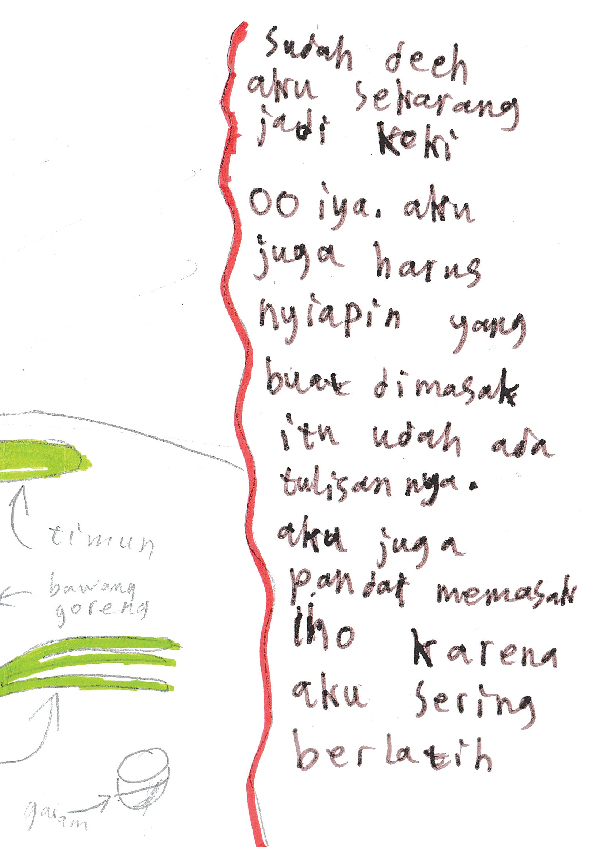 sudah deeh
aku sekarang
jadi keki
OO iya. aku
juga harus
nyiapin yang
buat dimasak
itu udah ada
tulisan nya.
aku juga
pandat memasak
lho karena
aku sering
berlatih
timun
bawang
goreng
garam